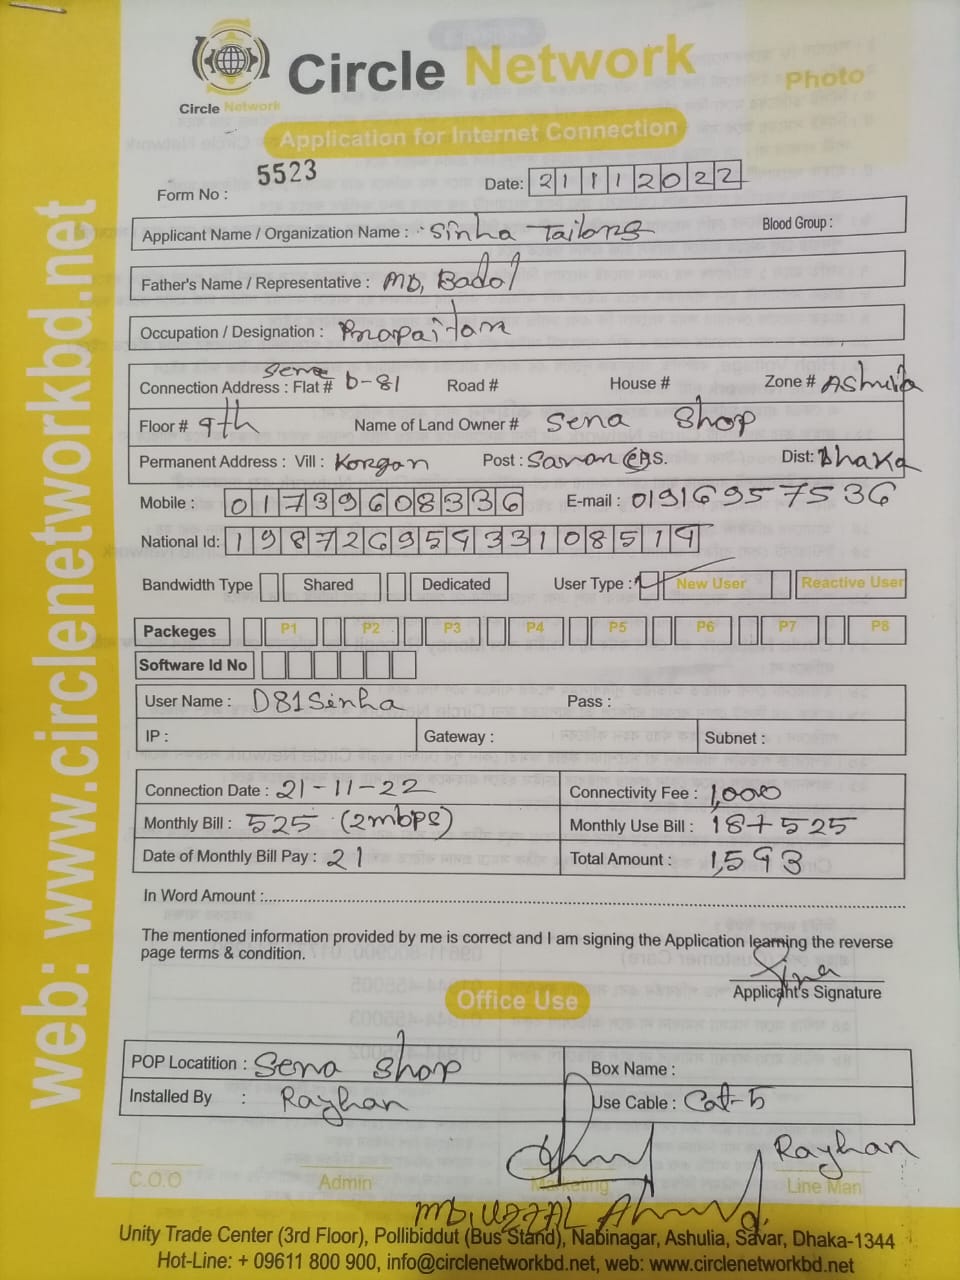 Circle Network
Circle Network
Photo
Application for Internet Connection
Form No : 5523
Date: 21112022
Applicant Name / Organization Name : Sinha Tailors
Blood Group :
Father's Name / Representative : MD, Badol
Occupation / Designation : Propaitor
Connection Address : Flat # Sena D-81 Road # House # Zone # Ashulia
Floor # 9th Name of Land Owner # Sena Shop
Permanent Address : Vill : Korgan Post : Savar Dist: Dhaka
Mobile : 01739608336 E-mail : 01916957536
National Id: 19872695933108519
Bandwidth Type Shared Dedicated User Type : New User Reactive User
Packeges P1 P2 P3 P4 P5 P6 P7 P8
Software Id No
User Name : D81Sinha Pass :
IP : Gateway : Subnet :
Connection Date : 21-11-22 Connectivity Fee : 1,000
Monthly Bill : 525 (2mbps) Monthly Use Bill : 187525
Date of Monthly Bill Pay : 21 Total Amount : 1,593
In Word Amount :
The mentioned information provided by me is correct and I am signing the Application learning the reverse
page terms & condition.
Applicant's Signature
Office Use
POP Locatition : Sena Shop Box Name :
Installed By : Rayhan Use Cable : Cat-5
Rayhan
C.O.O Admin Marketing Line Man
MD, UZZAL Ahmed.
Unity Trade Center (3rd Floor), Pollibiddut (Bus Stand), Nabinagar, Ashulia, Savar, Dhaka-1344
Hot-Line: + 09611 800 900, info@circlenetworkbd.net, web: www.circlenetworkbd.net
web: www.circlenetworkbd.net